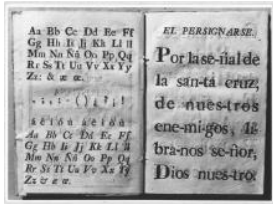 Aa Bb Cc Dd Ee Ff
Gg Hh Ii Jj Kk Ll ll
Mm Nn Ññ Oo Pp Qq
Rr Ss Tt Uu Vv Xx Yy
Zz: & æ œ.
á é í ó ú à è ì ò ù
Aa Bb Cc Dd Ee Ff
Gg Hh Ii Jj Kk Ll ll
Mm Nn Ññ Oo Pp Qq
Rr Ss Tt Uu Vv Xx Yy
Zz & æ œ.
EL PERSIGNARSE.
Por la se-ñal de
la san-tá cruz,
de nues-tros
ene-mi-gos, lí
bra-nos se-ñor,
Dios nues-tro.